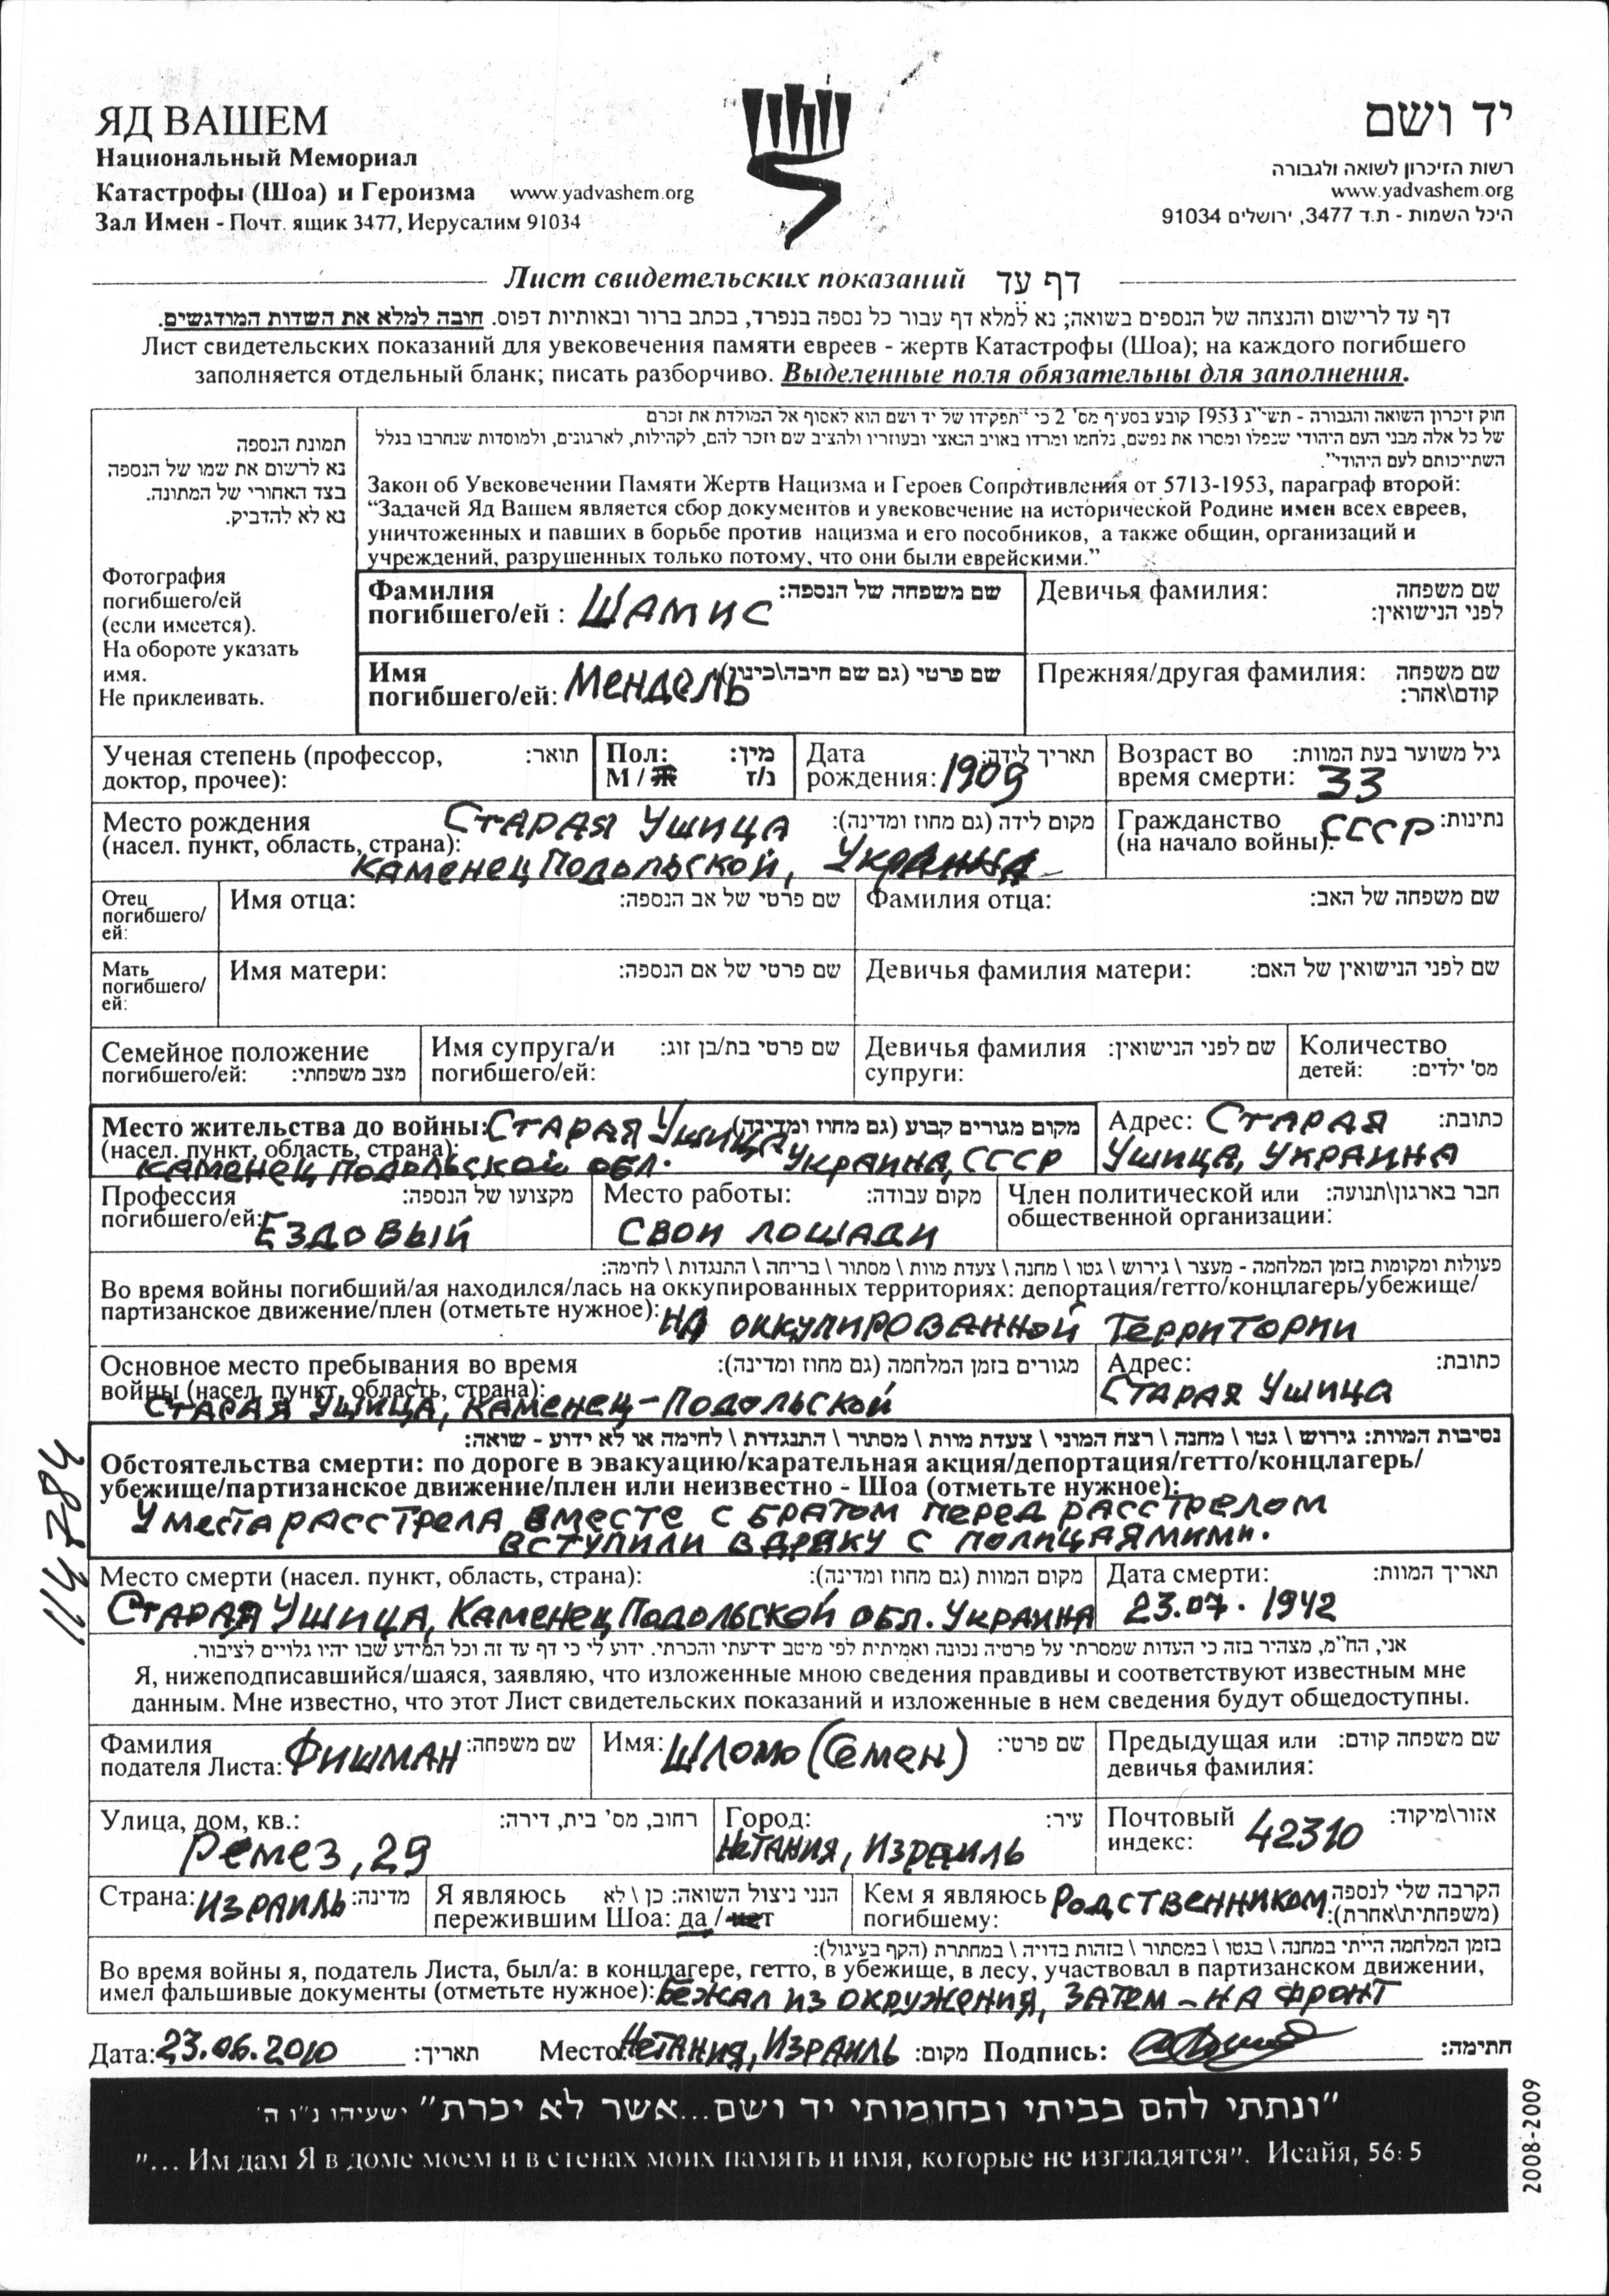 ЯД ВАШЕМ
Национальный Мемориал
Катастрофы (Шоа) и Героизма www.yadvashem.org
Зал Имен - Почт. ящик 3477, Иерусалим 91034
יד ושם
רשות הזיכרון לשואה ולגבורה
www.yadvashem.org
היכל השמות - ת.ד 3477, ירושלים 91034
Лист свидетельских показаний דף עד
דף עד לרישום והנצחה של הנספים בשואה; נא למלא דף עבור כל נספה בנפרד, בכתב ברור ובאותיות דפוס. חובה למלא את השדות המודגשים.
Лист свидетельских показаний для увековечения памяти евреев - жертв Катастрофы (Шоа); на каждого погибшего
заполняется отдельный бланк; писать разборчиво. Выделенные поля обязательны для заполнения.
תמונת הנספה
נא לרשום את שמו של הנספה
בצד האחורי של המתונה.
נא לא להדביק.
Фотография
погибшего/ей
(если имеется).
На обороте указать
имя.
Не приклеивать.
חוק זיכרון השואה והגבורה - תשי"ג 1953 קובע בסעיף מס' 2 כי "תפקידו של יד ושם הוא לאסוף אל המולדת את זכרם
של כל אלה מבני העם היהודי שנפלו ומסרו את נפשם, נלחמו ומרדו באויב הנאצי ובעוזריו ולהציב שם וזכר להם, לקהילות, לארגונים, ולמוסדות שנחרבו בגלל
השתייכותם לעם היהודי".
Закон об Увековечении Памяти Жертв Нацизма и Героев Сопротивления от 5713-1953, параграф второй:
“Задачей Яд Вашем является сбор документов и увековечение на исторической Родине имен всех евреев,
уничтоженных и павших в борьбе против нацизма и его пособников, а также общин, организаций и
учреждений, разрушенных только потому, что они были еврейскими.”
Фамилия שם משפחה של הנספה:
погибшего/ей : Шамис
Девичья фамилия: שם משפחה
לפני הנישואין:
Имя שם פרטי (גם שם חיבה\כינוי):
погибшего/ей: Мендель
Прежняя/другая фамилия: שם משפחה
קודם\אחר:
Ученая степень (профессор, תואר:
доктор, прочее):
Пол: מין:
М / Ж ז/נ
Дата תאריך לידה:
рождения: 1909
Возраст во גיל משוער בעת המוות:
время смерти: 33
Место рождения Старая Ушица מקום לידה (גם מחוז ומדינה):
(насел. пункт, область, страна):
Каменец Подольской, Украина
Гражданство СССР נתינות:
(на начало войны):
Отец
погибшего/
ей:
Имя отца: שם פרטי של אב הנספה:
Фамилия отца: שם משפחה של האב:
Мать
погибшего/
ей:
Имя матери: שם פרטי של אם הנספה:
Девичья фамилия матери: שם לפני הנישואין של האם:
Семейное положение
погибшего/ей: מצב משפחתי:
Имя супруга/и שם פרטי בת/בן זוג:
погибшего/ей:
Девичья фамилия שם לפני הנישואין:
супруги:
Количество
детей: מס' ילדים:
Место жительства до войны: Старая Ушица מקום מגורים קבוע (גם מחוז ומדינה):
(насел. пункт, область, страна):
Каменец Подольской обл. Украина, СССР
Адрес: Старая כתובת:
Ушица, Украина
Профессия מקצועו של הנספה:
погибшего/ей: Ездовый
Место работы: מקום עבודה:
Свои лошади
Член политической или חבר בארגון\תנועה:
общественной организации:
פעולות ומקומות בזמן המלחמה - מעצר \ גירוש \ גטו \ מחנה \ צעדת מוות \ מסתור \ בריחה \ התנגדות \ לחימה:
Во время войны погибший/ая находился/лась на оккупированных территориях: депортация/гетто/концлагерь/убежище/
партизанское движение/плен (отметьте нужное): на оккупированной территории
Основное место пребывания во время מגורים בזמן המלחמה (גם מחוז ומדינה):
войны (насел. пункт, область, страна):
Старая Ушица, Каменец-Подольской
Адрес: כתובת:
Старая Ушица
נסיבות המוות: גירוש \ גטו \ מחנה \ רצח המוני \ צעדת מוות \ מסתור \ התנגדות \ לחימה או לא ידוע - שואה:
Обстоятельства смерти: по дороге в эвакуацию/карательная акция/депортация/гетто/концлагерь/
убежище/партизанское движение/плен или неизвестно - Шоа (отметьте нужное):
У места расстрела вместе с братом перед расстрелом
вступили в драку с полицаямими.
Место смерти (насел. пункт, область, страна): מקום המוות (גם מחוז ומדינה):
Старая Ушица, Каменец Подольской обл. Украина
Дата смерти: תאריך המוות:
23.07.1942
114784
אני, הח"מ, מצהיר בזה כי העדות שמסרתי על פרטיה נכונה ואמיתית לפי מיטב ידיעתי והכרתי. ידוע לי כי דף עד זה וכל המידע שבו יהיו גלויים לציבור.
Я, нижеподписавшийся/шаяся, заявляю, что изложенные мною сведения правдивы и соответствуют известным мне
данным. Мне известно, что этот Лист свидетельских показаний и изложенные в нем сведения будут общедоступны.
Фамилия שם משפחה:
подателя Листа: Фишман
Имя: Шломо (Семен) שם פרטי:
Предыдущая или שם משפחה קודם:
девичья фамилия:
Улица, дом, кв.: רחוב, מס' בית, דירה:
Ремез, 29
Город: עיר:
Нетания, Израиль
Почтовый אזור\מיקוד:
индекс: 42310
Страна: Израиль מדינה:
Я являюсь הנני ניצול השואה: כן \ לא
пережившим Шоа: да / нет
Кем я являюсь Родственником הקרבה שלי לנספה
погибшему: (משפחתית\אחרת):
בזמן המלחמה הייתי במחנה \ בגטו \ במסתור \ בזהות בדויה \ במחתרת (הקף בעיגול):
Во время войны я, податель Листа, был/а: в концлагере, гетто, в убежище, в лесу, участвовал в партизанском движении,
имел фальшивые документы (отметьте нужное): Бежал из окружения, затем - на фронт
Дата: 23.06.2010 תאריך: Место: Нетания, Израиль מקום: Подпись: חתימה:
"ונתתי להם בביתי ובחומותי יד ושם...אשר לא יכרת" ישעיהו נ"ו ה'
"... Им дам Я в доме моем и в стенах моих память и имя, которые не изгладятся". Исайя, 56: 5
2008-2009